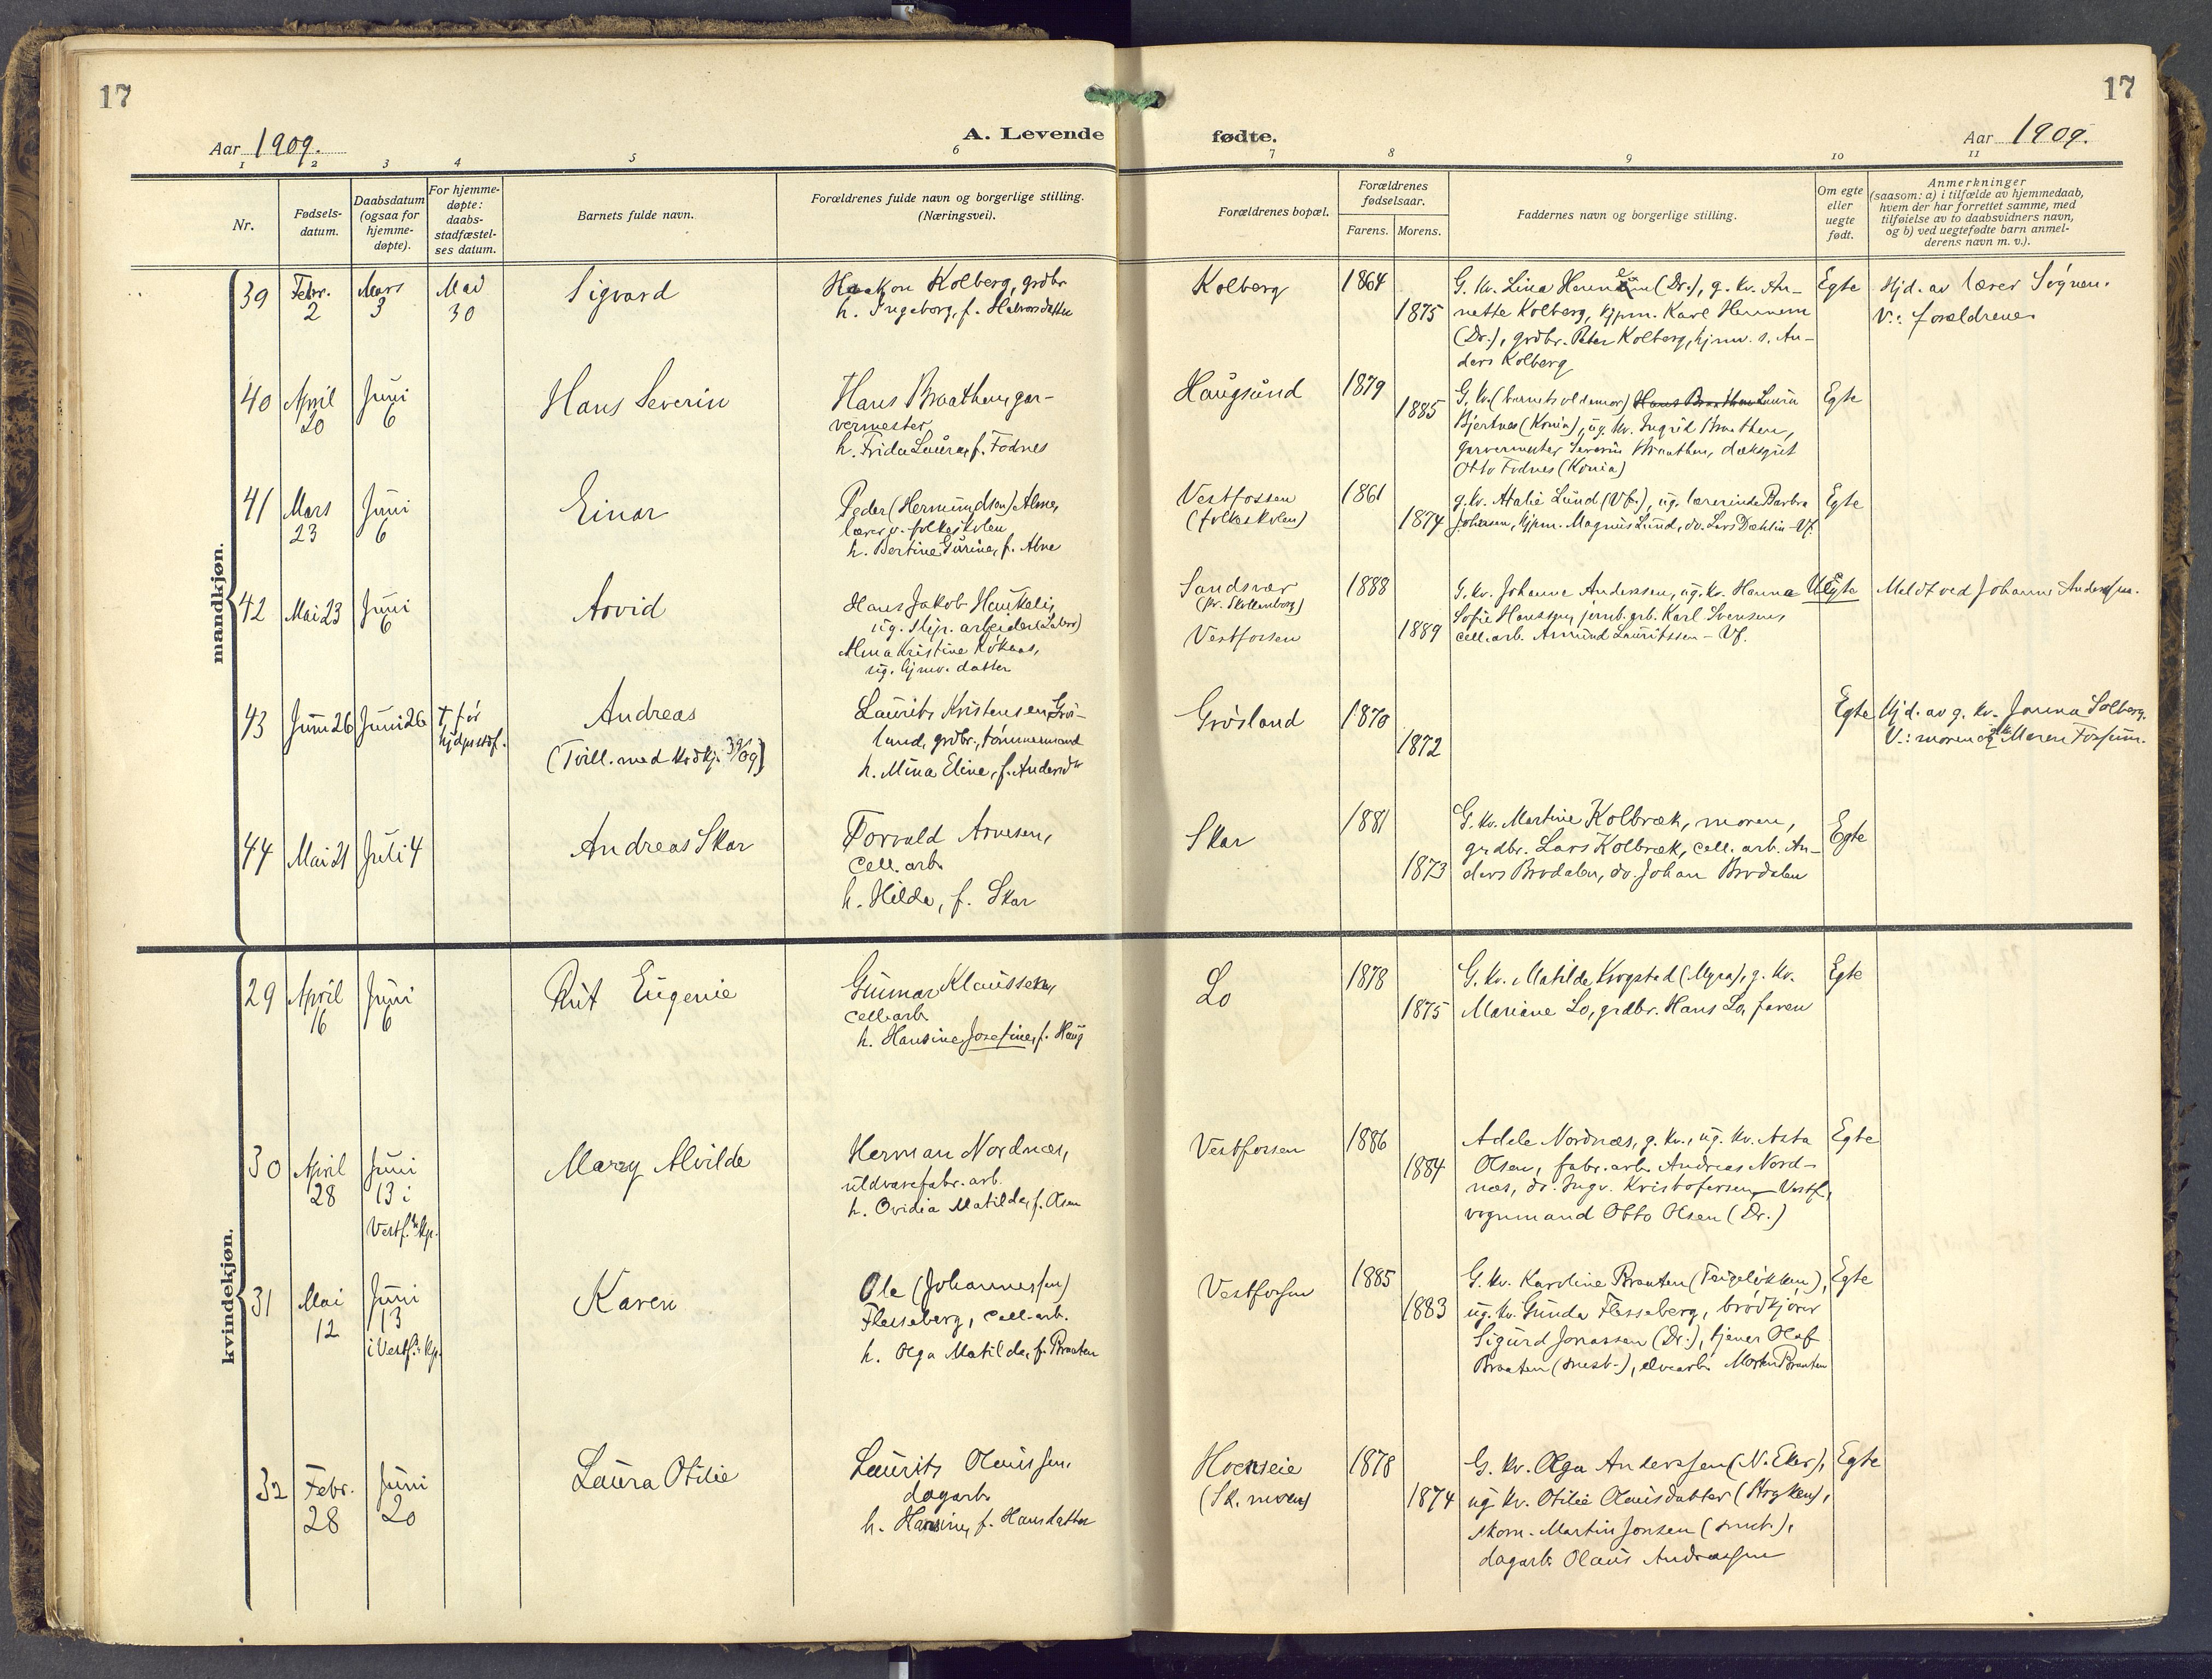 17
17
Aar 1909.
A. Levende fødte.
Aar 1909.
1 2 3 4 5 6 7 8 9 10 11
Nr.
Fødsels-
datum.
Daabsdatum
(ogsaa for
hjemme-
døpte).
For hjemme-
døpte:
daabs-
stadfæstel-
ses datum.
Barnets fulde navn.
Forældrenes fulde navn og borgerlige stilling.
(Næringsvei).
Forældrenes bopæl.
Forældrenes
fødselsaar.
Farens. Morens.
Faddernes navn og borgerlige stilling.
Om egte
eller
uegte
født.
Anmerkninger
(saasom: a) i tilfælde av hjemmedaab,
hvem der har forrettet samme, med
tilføielse av to daabsvidners navn,
og b) ved uegtefødte barn anmel-
derens navn m. v.).
mandkjøn.
39
Febr.
2
Mars
3
Mai
30
Sigvard
Haakon Kolberg, grdbr
h. Ingeborg, f. Halvorsdatter
Kolberg
1864
1875
G. kv. Lina Hennem (Dr.), g. kv. An-
nette Kolberg, kjpm. Karl Hennem
(Dr.), grdbr. Peter Kolberg, hjmv. s. An-
ders Kolberg
Egte
Hjd. av lærer Søgnen.
V.: forældrene
40
April
20
Juni
6
Hans Severin
Hans Braathen, gar-
vermester
h. Frida Laura, f. Fodnes
Haugsund
1879
1885
G. kv. (barnets oldemor) Hans Braathen Laura
Bjertnes (Konia), ug. kv. Ingrid Braathen,
garvermester Severin Braathen, dæksgut
Otto Fodnes (Konia)
Egte
41
Mars
23
Juni
6
Einar
Peder (Hermundsen) Alme,
lærer v. folkeskolen
h. Bertine Gurine, f. Alme
Vestfossen
(folkeskolen)
1861
1874
g. kv. Atalie Lund (Vf.), ug. lærerinde Barbra
Johnsen, kjpm. Magnus Lund, do. Lars Dæhlin - Vf.
Egte
42
Mai 23
Juni
6
Arvid
Hans Jakob Haukeli,
ug. slip. arbeider
Alma Kristine Kökaas,
ug. hjmv. datter
Sandsvær
(pr. Skollenborg)
Vestfossen
1888
1889
G. kv. Johanne Anderssen, ug. kv. Hanna
Sofie Hanssen, jernb. arb. Karl Svensen,
cell. arb. Amund Lauritssen - Vf.
Uegte
Meldt ved Johanne Anderssen.
43
Juni 26
Juni 26
†, før
hjdpsstdf.
Andreas
(Tvill. med kvdkj. 39/09)
Laurits Kristensen Grøs-
land, grdbr., tømmermand
h. Mina Eline, f. Andersdtr
Grøsland
1870
1872
Egte
Hjd. av g. kv. Janna Solberg.
V.: moren og g. kv. Maren Fossum.
44
Mai 21
Juli 4
Andreas Skar
Torvald Arnesen,
cell. arb.
h. Hilda, f. Skar
Skar
1881
1873
G. kv. Martine Kolbræk, moren,
grdbr. Lars Kolbræk, cell. arb. An-
ders Brodalen, do. Johan Brodalen
Egte
kvindekjøn.
29
April
16
Juni
6
Rut Eugenie
Gunnar Klaussen,
cell. arb.
h. Hansine Josefine, f. Haug
Lo
1878
1875
G. kv. Matilde Krogstad (Myra), g. kv.
Mariane Lo, grdbr. Hans Lo, faren
Egte
30
April
28
Juni
13 i
Vestf. kp.
Mary Alvilde
Herman Nordnæs,
uldvarefabr. arb.
h. Ovidia Matilda, f. Olsen
Vestfossen
1886
1884
Adele Nordnæs, g. kv., ug. kv. Asta
Olsen, fabr. arb. Andreas Nord-
næs, do. Ingv. Kristofersen - Vestf.,
vognmand Otto Olsen (Dr.)
Egte
31
Mai
12
Juni
13
i Vestf. kp.
Karen
Ole (Johannessen)
Flesseberg, cell. arb.
h. Olga Matilda, f. Braaten
Vestfossen
1885
1883
G. kv. Karoline Braaten (Teigeløkken),
ug. kv. Gunda Flesseberg, brødkjører
Sigurd Jonassen (Dr.), tjener Olaf
Braaten (smst.), elvearb. Morten Braaten
Egte
32
Febr.
28
Juni
20
Laura Otilie
Laurits Olaussen,
dagarb.
h. Hansine, f. Hansdatter
Hoenseie
(Sk. moen)
1878
1874
G. kv. Olga Anderssen (N. Eker),
ug. kv. Otilie Olausdatter (Røyken),
skom. Martin Jonsen (smst.),
dagarb. Olaus Andreassen
Egte